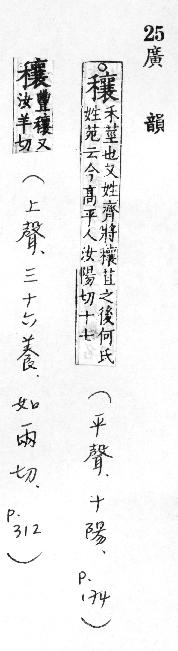 25
廣韻
穰禾莖也又姓齊將穰苴之後何氏
姓苑云今高平人汝陽切十七
(平聲、十陽、p.174)
穰豐穰又
汝羊切
(上聲、三十六養、如兩切、p.312)